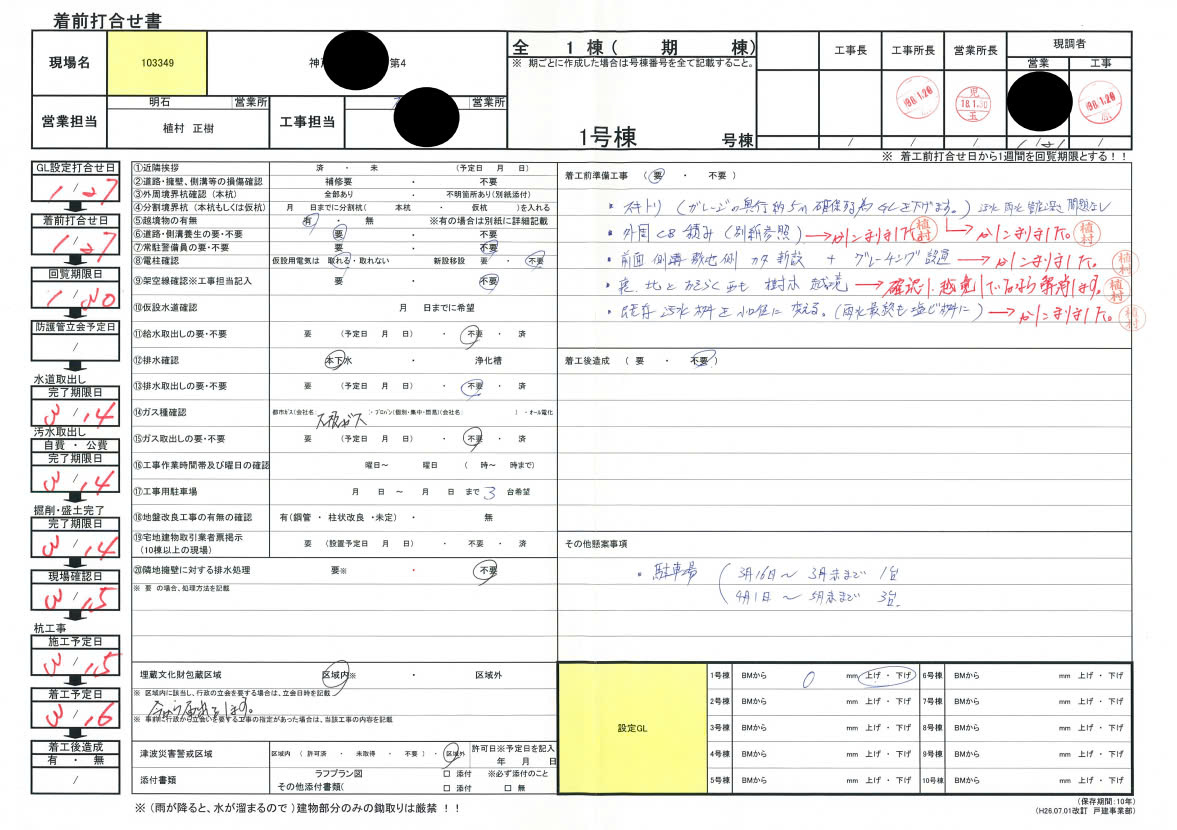 着前打合せ書
現場名
103349
第4
全 1 棟( 期 棟)
※ 期ごとに作成した場合は号棟番号を全て記載すること。
1号棟 号棟
工事長
工事所長
営業所長
現調者
営業 工事
営業担当
明石 営業所
植村 正樹
工事担当
営業所
'98.1.20
18.1.30
'98.1.20
※ 着工前打合せ日から1週間を回覧期限とする!!
GL設定打合せ日
1/27
着前打合せ日
1/27
回覧期限日
1/30
防護管立会予定日
/
水道取出し
完了期限日
3/14
汚水取出し
自費 ・ 公費
完了期限日
3/14
掘削・盛土完了
完了期限日
3/14
現場確認日
3/15
杭工事
施工予定日
3/15
着工予定日
3/16
着工後造成
有 ・ 無
/
①近隣挨拶 済 ・ 未 (予定日 月 日)
②道路・擁壁、側溝等の損傷確認 補修要 ・ 不要
③外周境界杭確認(本杭) 全部あり ・ 不明箇所あり(別紙添付)
④分割境界杭(本杭もしくは仮杭) 月 日までに分割杭( 本杭 ・ 仮杭 )を入れる
⑤越境物の有無 有 ・ 無 ※有の場合は別紙に詳細記載
⑥道路・側溝養生の要・不要 要 ・ 不要
⑦常駐警備員の要・不要 要 ・ 不要
⑧電柱確認 仮設用電気は 取れる・取れない 新設移設 要 ・ 不要
⑨架空線確認※工事担当記入 要 ・ 不要
⑩仮設水道確認 月 日までに希望
⑪給水取出しの要・不要 要 (予定日 月 日) ・ 不要 ・ 済
⑫排水確認 本下水 ・ 浄化槽
⑬排水取出しの要・不要 要 (予定日 月 日) ・ 不要 ・ 済
⑭ガス種確認 都市ガス(会社名: 大阪ガス )・プロパン(個別・集中・簡易)(会社名: ) ・オール電化
⑮ガス取出しの要・不要 要 (予定日 月 日) ・ 不要 ・ 済
⑯工事作業時間帯及び曜日の確認 曜日～ 曜日 ( 時～ 時まで)
⑰工事用駐車場 月 日 ～ 月 日 まで 3 台希望
⑱地盤改良工事の有無の確認 有(鋼管 ・ 柱状改良 ・未定) ・ 無
⑲宅地建物取引業者票掲示
(10棟以上の現場) 要 (設置予定日 月 日) ・ 不要 ・ 済
⑳隣地擁壁に対する排水処理 要※ ・ 不要
※ 要 の場合、処理方法を記載
埋蔵文化財包蔵区域 区域内※ ・ 区域外
※ 区域内に該当し、行政の立会を要する場合は、立会日時を記載
今から届出をします。
※ 事前に行政から立会いを要する工事の指定があった場合は、当該工事の内容を記載
津波災害警戒区域 区域内 ( 許可済 ・ 未取得 ・ 不要 ) ・ 区域外 許可日※予定日を記入
年 月 日
添付書類 ラフプラン図 □ 添付 ※必ず添付のこと
その他添付書類( □ 添付 □ 無
※(雨が降ると、水が溜まるので)建物部分のみの鋤取りは厳禁!!
着工前準備工事 ( 要 ・ 不要 )
・スキトリ (ガレージの奥行約5m確保の為GLを下げます。) 汚水 雨水 管深さ 問題なし
・外周CB積み (別紙参照) →かしこまりました。 植村 →かしこまりました。 植村
・前面 側溝 敷地側 カタ 新設 + グレーチング設置 →かしこまりました。 植村
・樹木 越境 →確認し越境しているなら 植村
・既存 汚水桝を小口径に変える。(雨水最終も塩ビ桝に) →かしこまりました。 植村
着工後造成 ( 要 ・ 不要 )
その他懸案事項
・駐車場 (3月16日～3月末まで 1台
4月1日～5月末まで 3台
設定GL
1号棟 BMから 0 mm 上げ ・ 下げ 6号棟 BMから mm 上げ ・ 下げ
2号棟 BMから mm 上げ ・ 下げ 7号棟 BMから mm 上げ ・ 下げ
3号棟 BMから mm 上げ ・ 下げ 8号棟 BMから mm 上げ ・ 下げ
4号棟 BMから mm 上げ ・ 下げ 9号棟 BMから mm 上げ ・ 下げ
5号棟 BMから mm 上げ ・ 下げ 10号棟 BMから mm 上げ ・ 下げ
(保存期間:10年)
(H26.07.01改訂 戸建事業部)